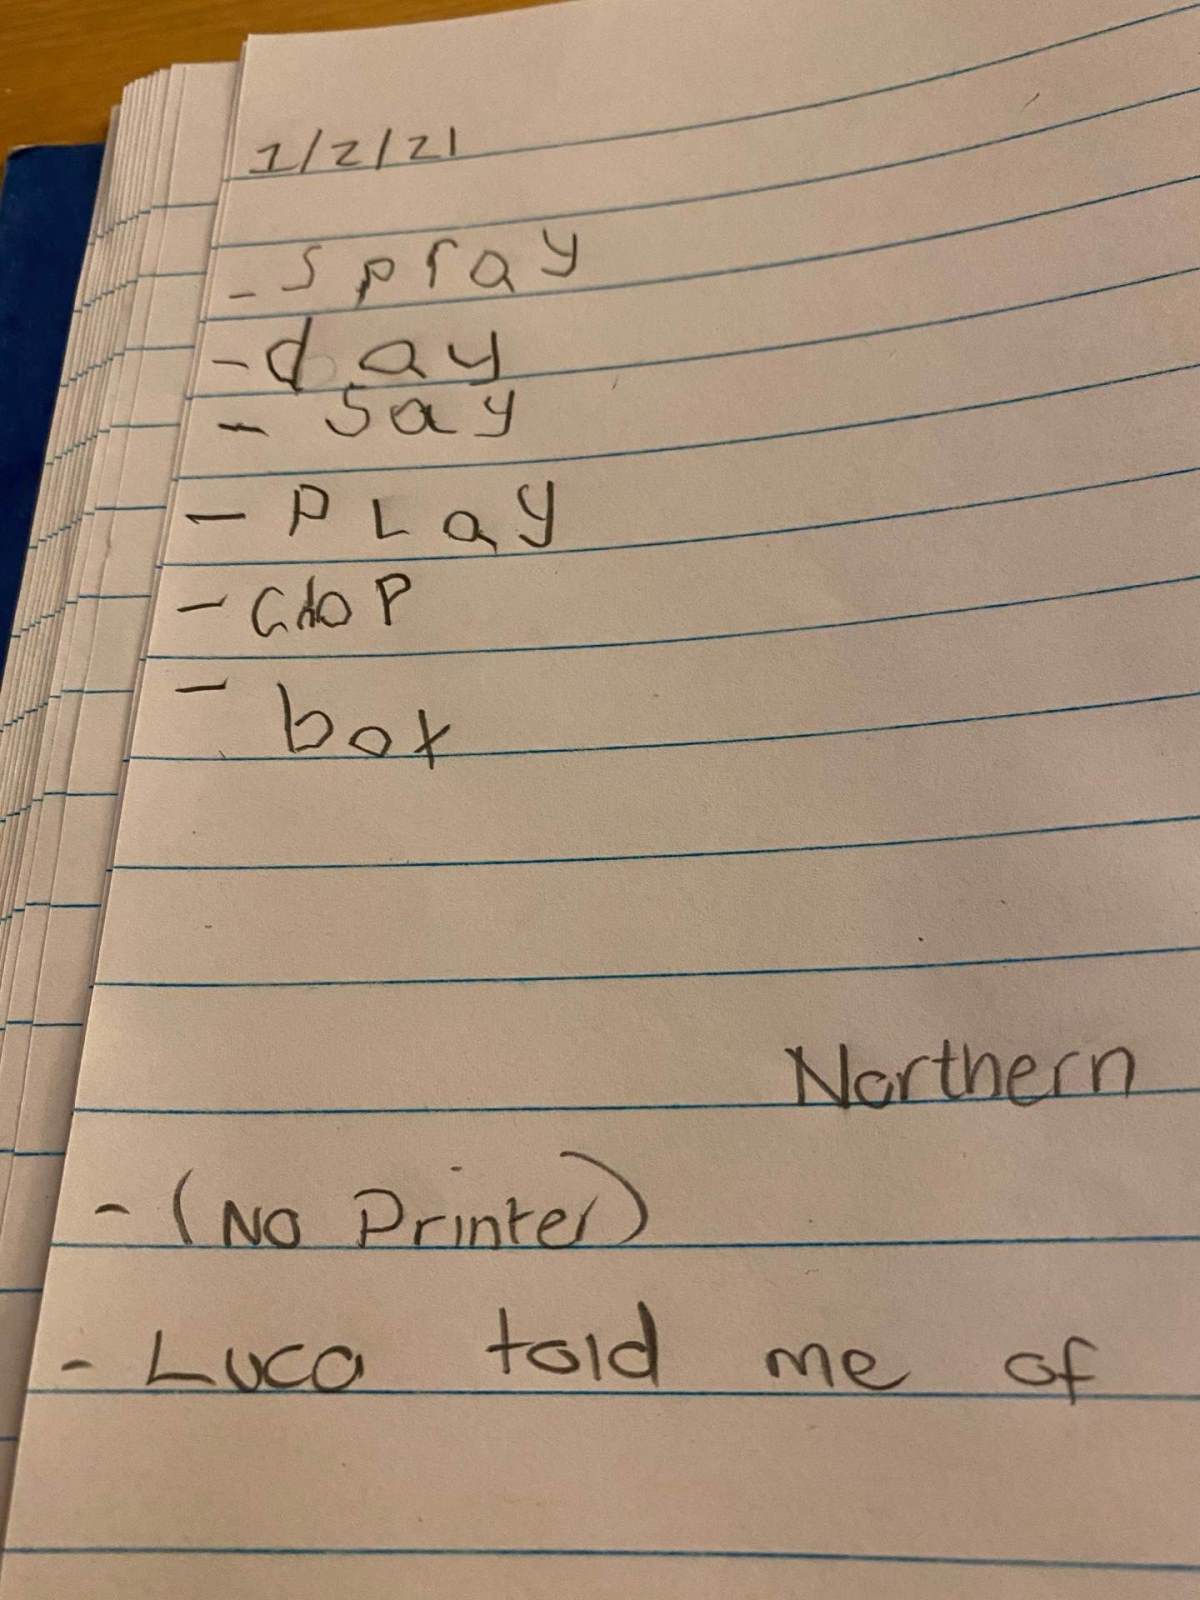 1/2/21
- spray
- day
- say
- PLay
- box
Northern
- (No Printer)
- Luca told me of